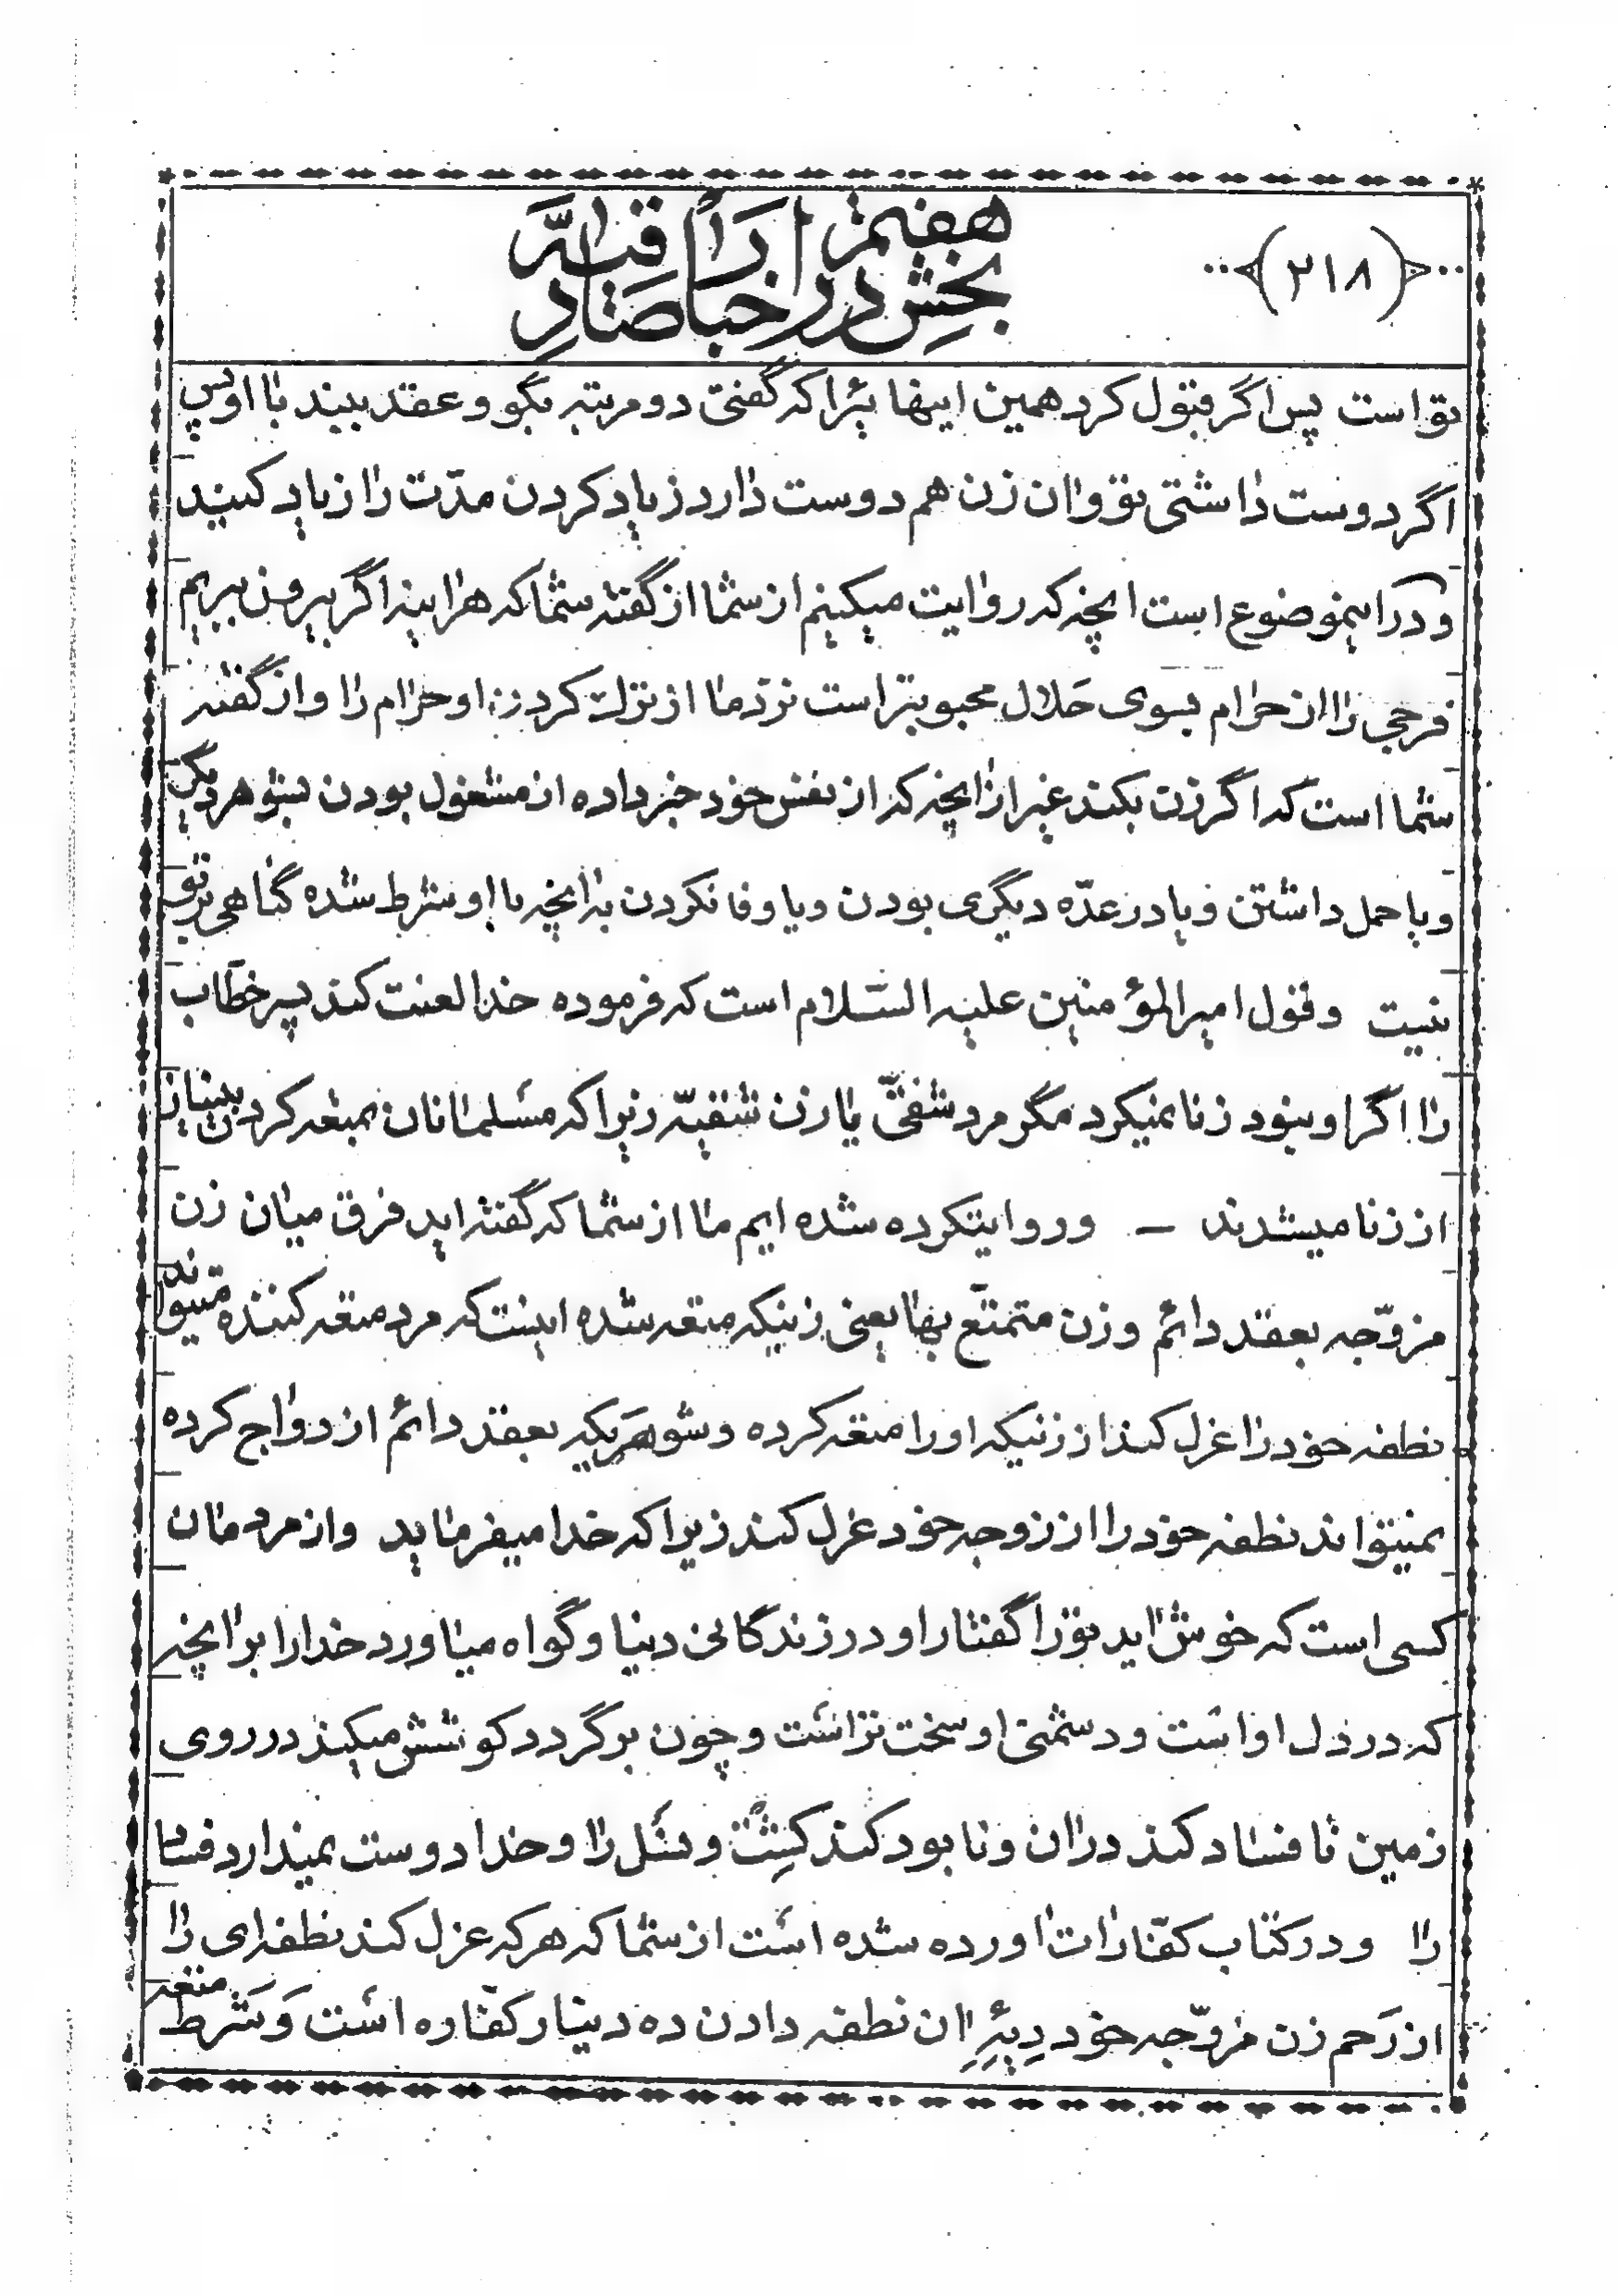 (۲۱۸)
بخش هفتم در اخبار صادقیه
تو است پس اگر قبول کرد همین اینها ئیرا که گفتی دو مرتبه بگو و عقد ببند با او پس
اگر دوست داشتی تو و ان زن هم دوست دارد زیاد کردن مدّت را زیاد کنید
و در اینموضوع است انچه که روایت میکنیم از شما از گفته شما که هر اینه اگر بیرون بریم
فرجی را از حرام بسوی حلال محبوبتر است نزد ما از ترک کردن او حرام را و از گفته
شما است که اگر زن بکند غیر از انچه که از نفس خود خبر داده از مشغول بودن بشوهر دیگر
و یا حمل داشتن و یا در عدّه دیگری بودن و یا وفا نکردن به انچه با او شرط شده گناهی بر تو
نیست و قول امیرالمؤمنین علیه السّلام است که فرموده خدا لعنت کند پسر خطّاب
را اگر او نبود زنا نمیکرد مگر مرد شقیّ یا زن شقیّه زیرا که مسلمانان بمتعه کردن بینیاز
از زنا میشدند – و روایتکرده شده ایم ما از شما که گفته اید فرق میان زن
مزوّجه بعقد دائم و زن متمتّع بها یعنی زنیکه متعه شده اینست که مرد متعه کننده میتواند
نطفه خود را عزل کند از زنیکه او را متعه کرده و شوهریکه بعقد دائم ازدواج کرده
نمیتواند نطفه خود را از زوجه خود عزل کند زیرا که خدا میفرماید و از مردمان
کسی است که خوش اید تو را گفتار او در زندگانی دنیا و گواه میاورد خدا را بر انچه
که در دل او است و دشمنی او سخت تر است و چون برگردد کوشش میکند در روی
زمین تا فساد کند در ان و نابود کند کِشت و نسل را و خدا دوست نمیدارد فساد
را و در کتاب کفّارات اورده شده است از شما که هر که عزل کند نطفه ای را
از رَحم زن مزوّجه خود دِیَهِ ان نطفه دادن ده دینار کفّاره است وَ شَرط متعه